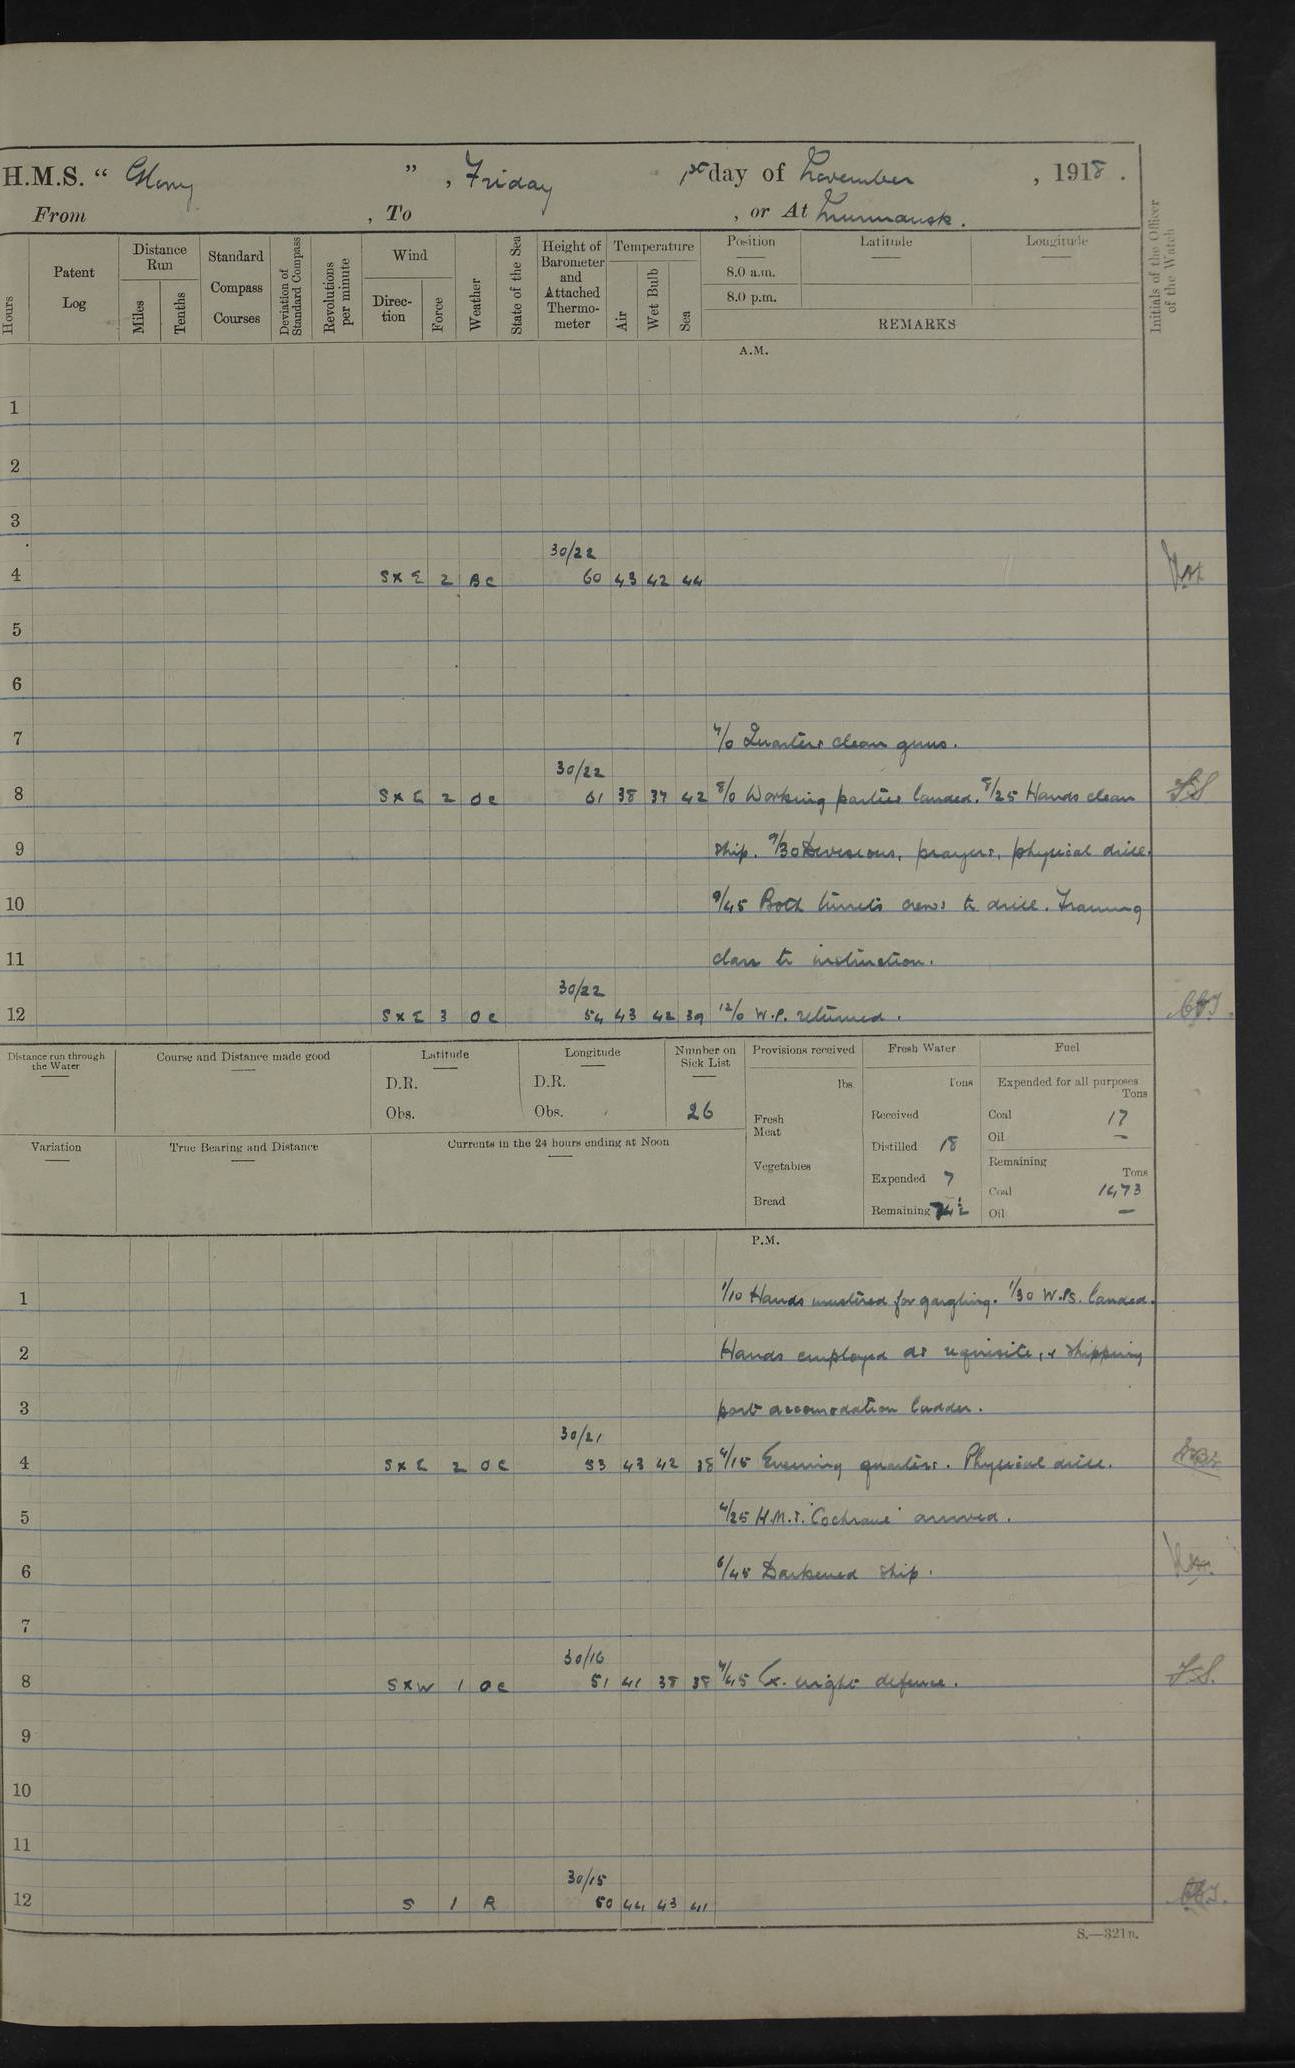 H.M.S. “ Glory ” , Friday 1st day of November , 1918 .
From , To , or At Murmansk .
Hours
Patent Log
Distance Run
Miles
Tenths
Standard Compass Courses
Deviation of Standard Compass
Revolutions per minute
Wind
Direc-tion
Force
Weather
State of the Sea
Height of Barometer and Attached Thermo-meter
Temperature
Air
Wet Bulb
Sea
Position
Latitude
Longitude
8.0 a.m.
8.0 p.m.
REMARKS
Initials of the Officer of the Watch
A.M.
1
2
3
30/22
4 S x E 2 B C 60 43 42 44
5
6
7 7/0 Quarters clean guns.
30/22
8 S x E 2 O C 61 38 37 42 8/0 Working parties landed. 8/25 Hands clean
9 ship. 9/30 Divisions, prayers, physical drill.
10 9/45 Both turrets crews to drill. Training
11 class to instruction.
30/22
12 S x E 3 O C 54 43 42 39 12/0 W.P. returned.
Distance run through the Water
Course and Distance made good
Latitude
D.R.
Obs.
Longitude
D.R.
Obs.
Number on Sick List
26
Provisions received
lbs.
Fresh Meat
Vegetables
Bread
Fresh Water
Tons
Received
Distilled 18
Expended 7
Remaining
Fuel
Expended for all purposes
Tons
Coal 17
Oil —
Remaining
Tons
Coal 1473
Oil —
Variation
True Bearing and Distance
Currents in the 24 hours ending at Noon
P.M.
1 1/10 Hands mustered for gargling. 1/30 W.Ps. landed.
2 Hands employed as requisite, & shipping
3 port accomodation ladder.
30/21
4 S x E 2 O C 53 43 42 38 4/15 Evening quarters. Physical drill.
5 4/25 H.M.S. "Cochrane" arrived.
6 6/45 Darkened ship.
7
30/16
8 S x W 1 O C 51 41 38 38 7/45 Ex. night defence.
9
10
11
30/15
12 S 1 R 50 44 43 41
S.—321n.